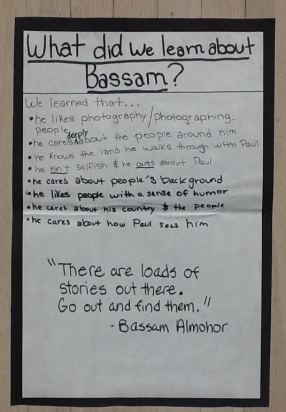 What did we learn about
Bassam?
We learned that...
• he likes photography/photographing
people
• he cares deeply about the people around him
• he knows the land he walks through with Paul
• he isn't selfish & he cares about Paul
• he cares about people's background
• he likes people with a sense of humor
• he cares about his country & the people
• he cares about how Paul sees him
"There are loads of
stories out there.
Go out and find them."
- Bassam Almohor